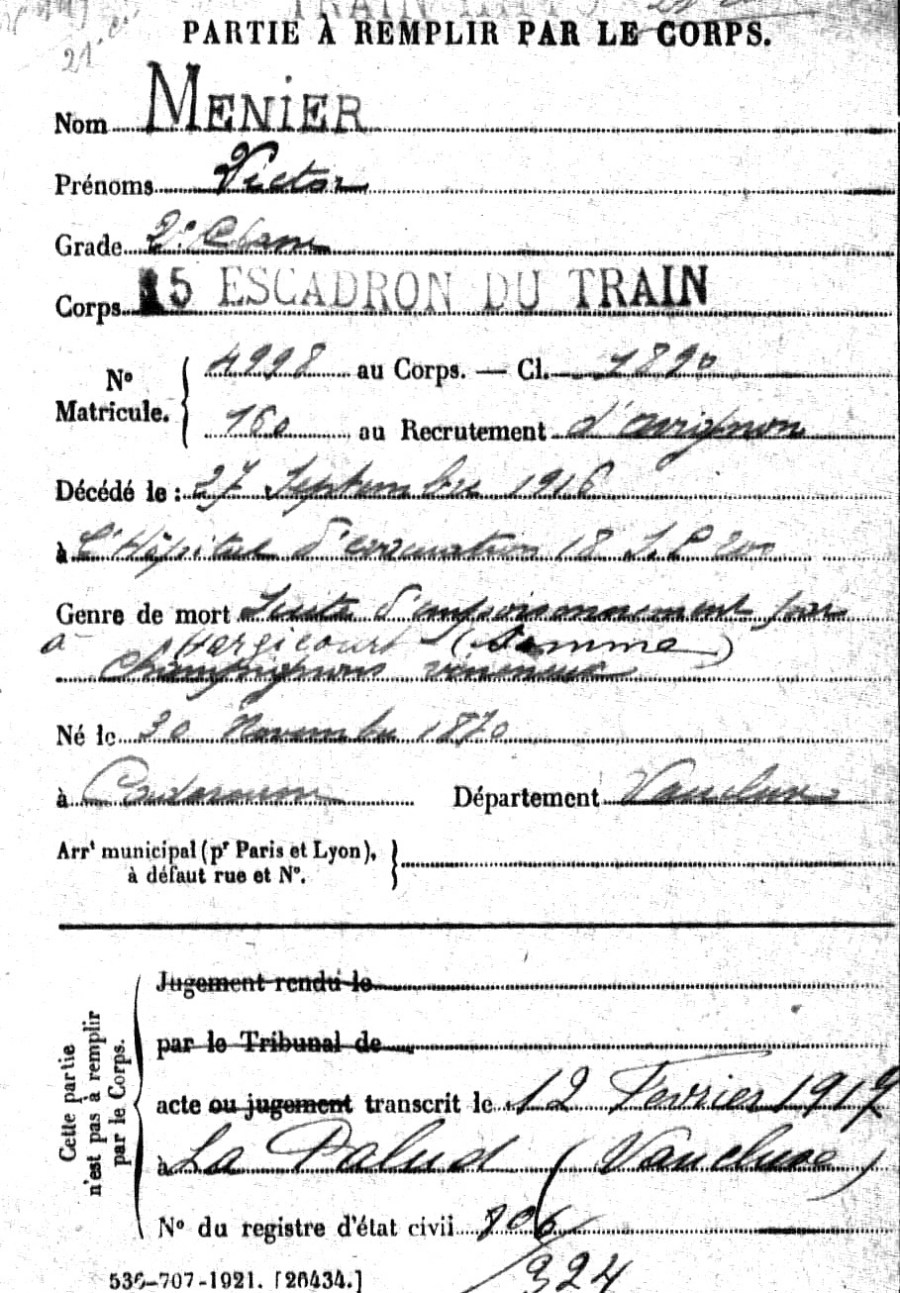 21
PARTIE À REMPLIR PAR LE CORPS.
Nom MENIER
Prénoms Victor
Grade 2e Classe
Corps 15 ESCADRON DU TRAIN
No Matricule. { 4998 au Corps. — Cl. 1890
160 au Recrutement d'avignon
Décédé le : 27 Septembre 1916
à L'Hôpital d'évacuation 18 S.P 200
Genre de mort Suite d'empoisonnement par
à Hargicourt (Somme)
champignons vénéneux
Né le 30 Novembre 1870
à Département Vaucluse
Arrt municipal (pr Paris et Lyon),
à défaut rue et No.
Cette partie n'est pas à remplir par le Corps.
Jugement rendu le
par le Tribunal de
acte ou jugement transcrit le 12 Fevrier 1917
à La Palud (Vaucluse)
No du registre d'état civil 706
/324
536-707-1921. [26434.]